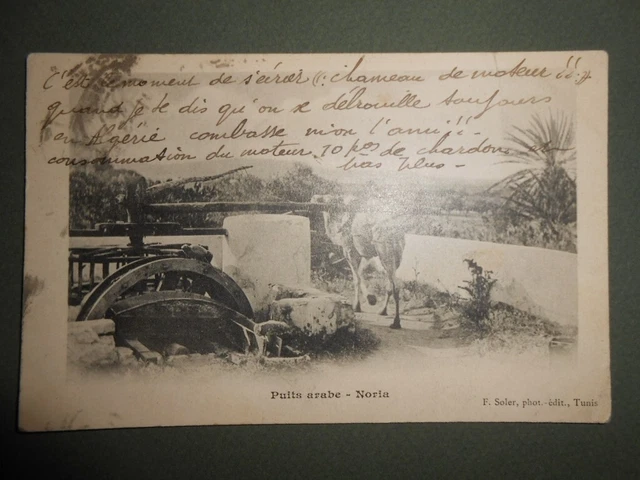 C'est le moment de s'écrier (: chameau de moteur !! :)
quand je te dis qu'on se débrouille toujours
en Algérie mon l'ami !!
consommation du moteur. 70 pos de chardons et
pas plus -
Puits arabe - Noria
F. Soler, phot.-édit., Tunis